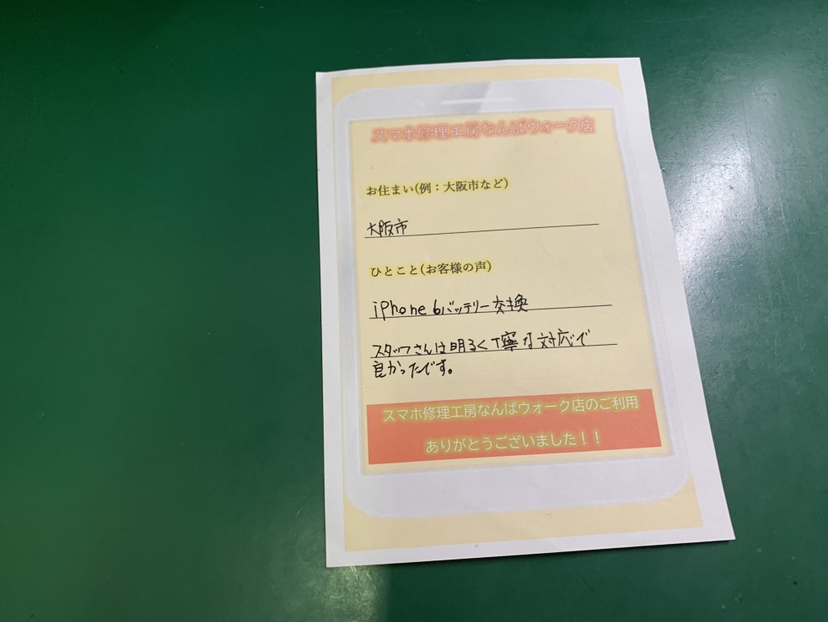 スマホ修理工房なんばウォーク店
お住まい(例：大阪市など)
大阪市
ひとこと(お客様の声)
iPhone 6バッテリー交換
スタッフさんは明るく丁寧な対応で
良かったです。
スマホ修理工房なんばウォーク店のご利用
ありがとうございました！！